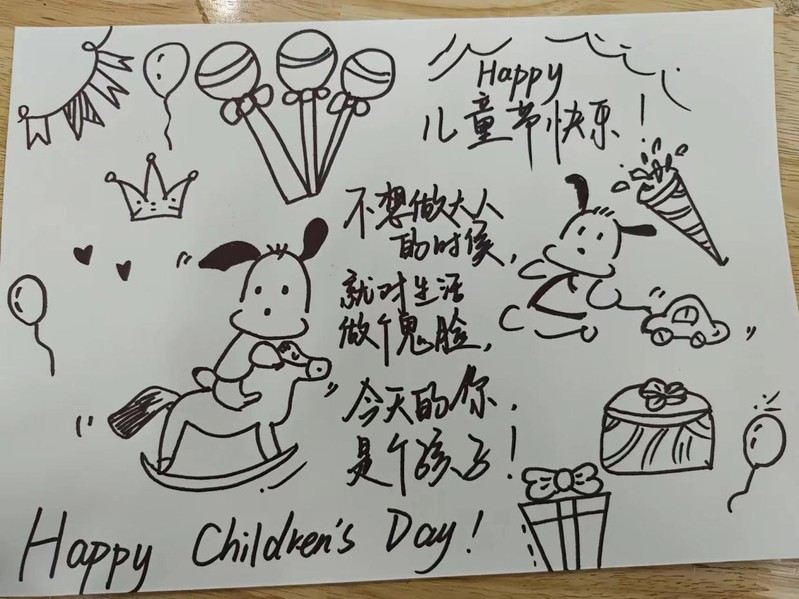 Happy
儿童节快乐!
不想做大人
的时候,
就对生活
做个鬼脸,
今天的你,
是个孩子!
Happy Children's Day!